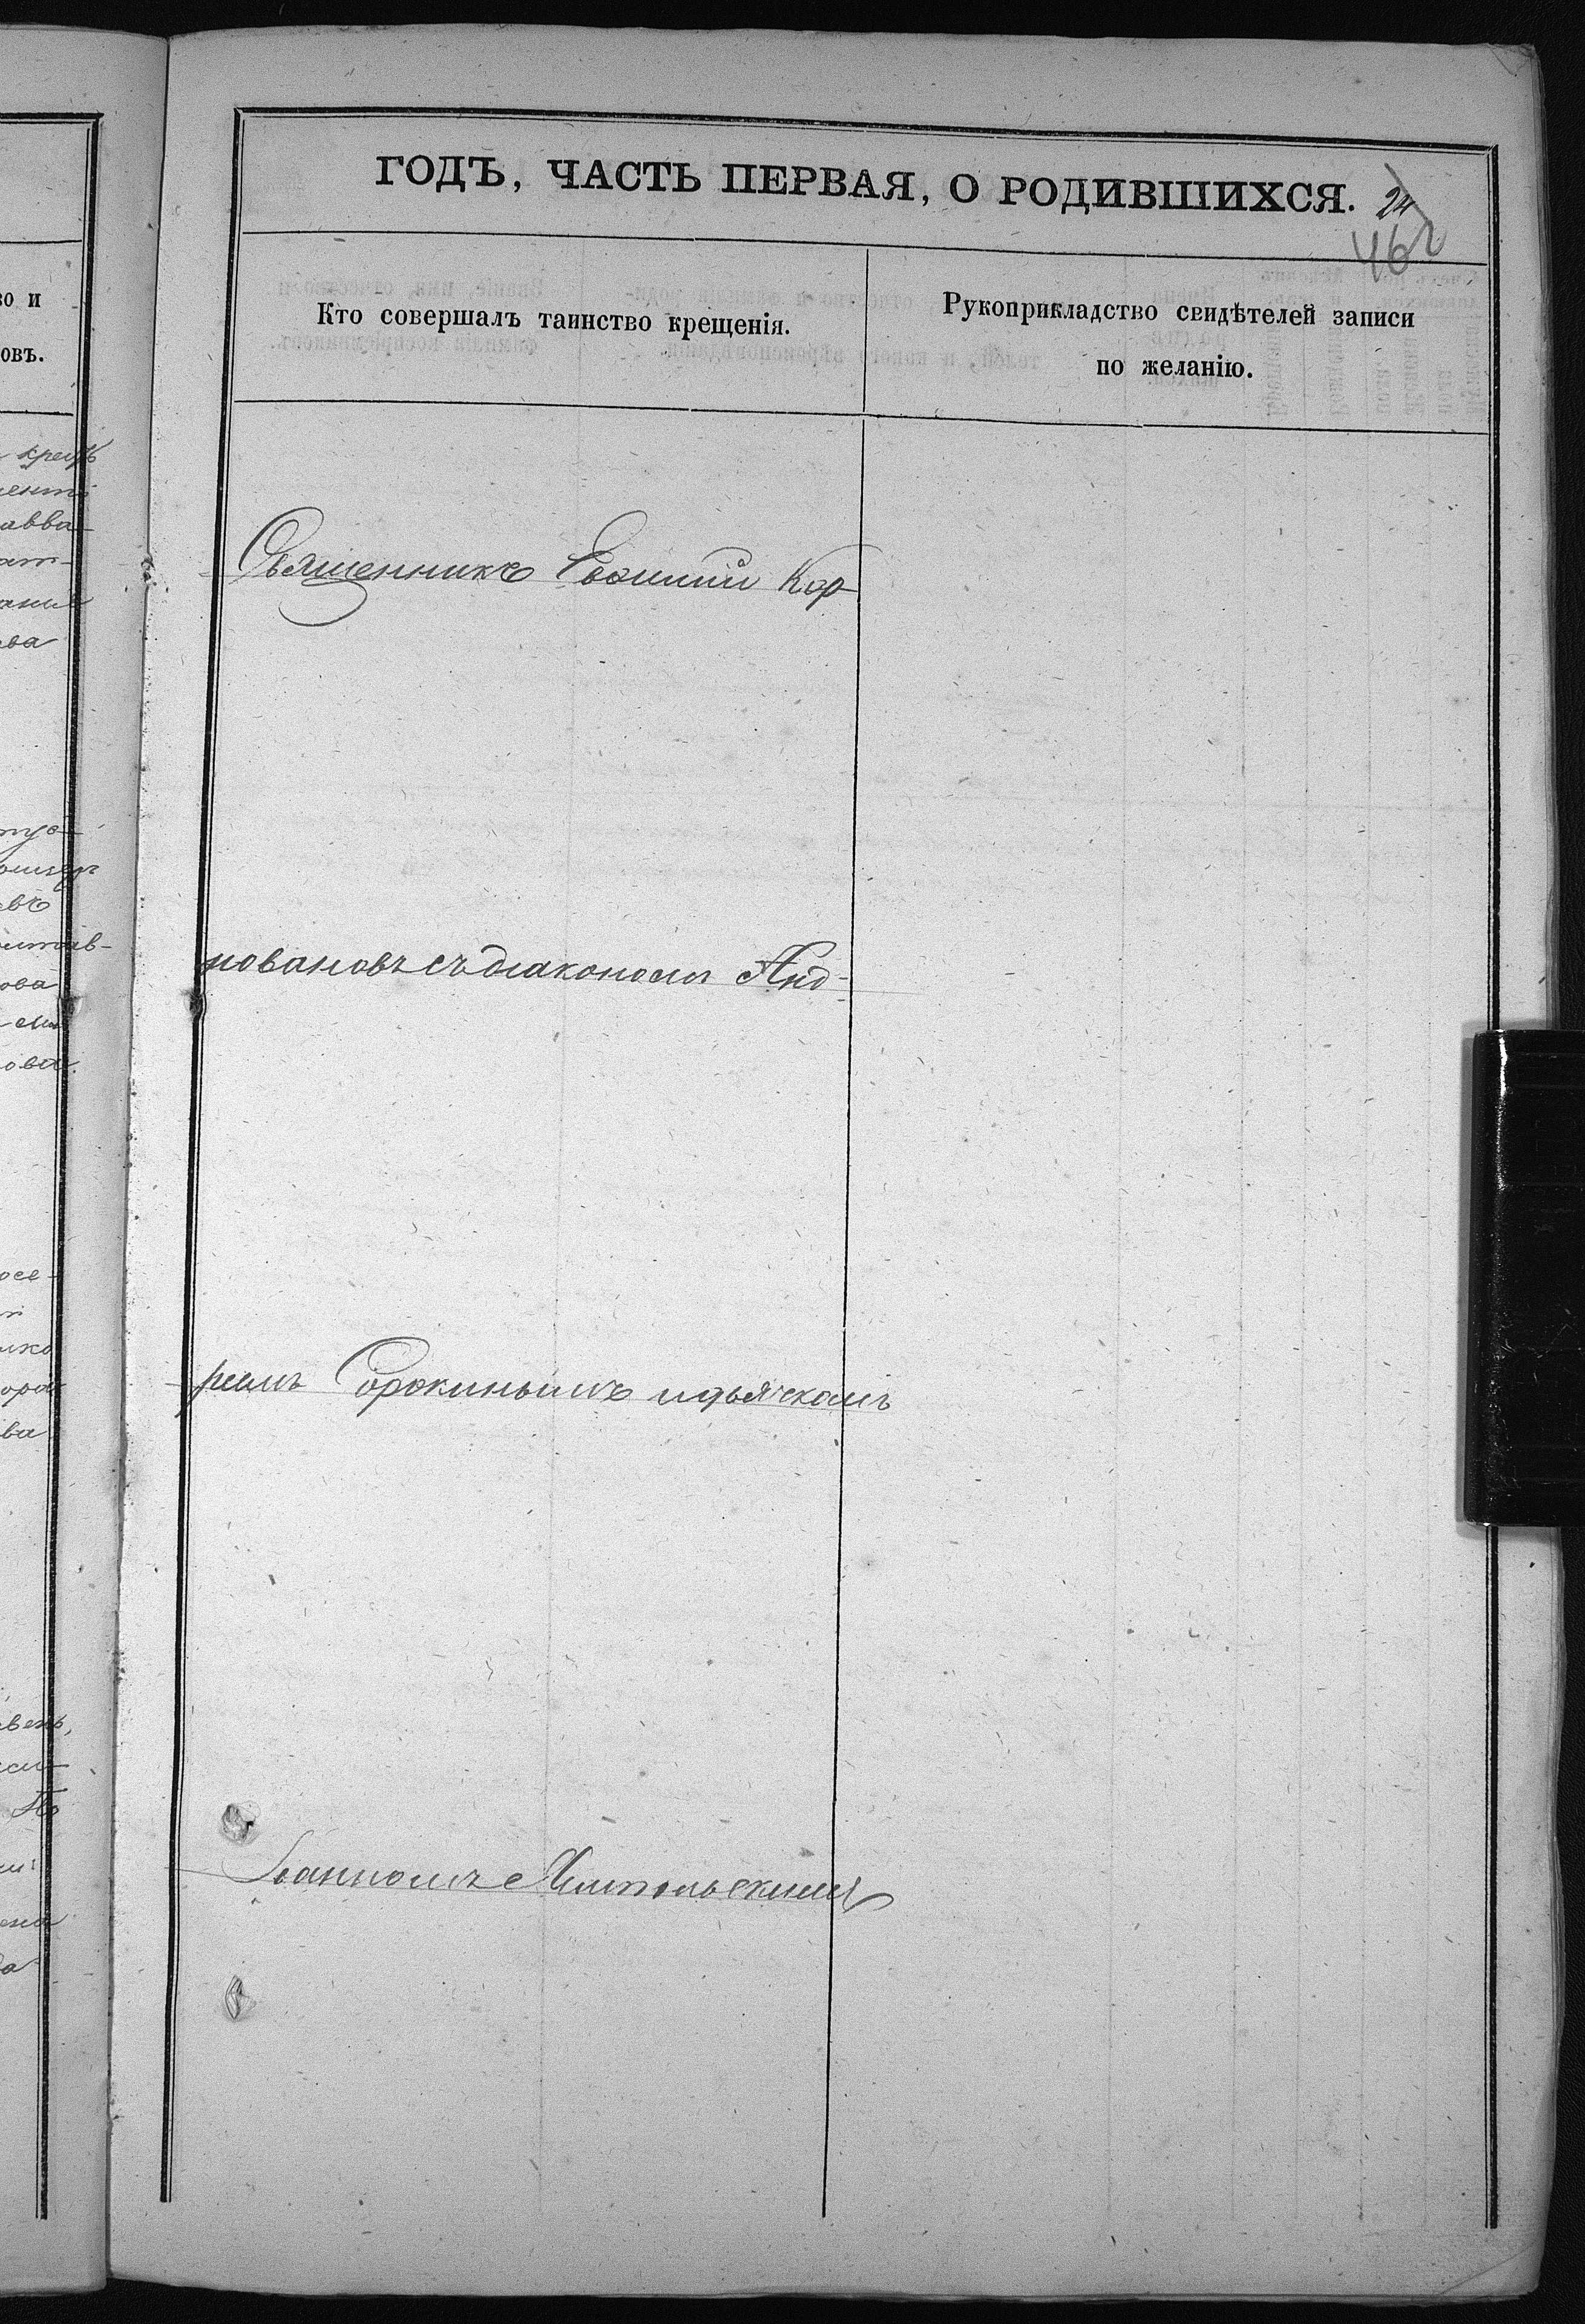 ГОДЪ, ЧАСТЬ ПЕРВАЯ, О РОДИВШИХСЯ.
24
462
Кто совершалъ таинство крещенія.
Рукоприкладство свидѣтелей записи
по желанію.
Священникъ Евѳимій Кор-
новановъ съ діакономъ Анд-
реемъ Сорокинымъ и дьячкомъ
Іоанномъ Ямпольскимъ
во и
овъ.
ова
ова.
ова